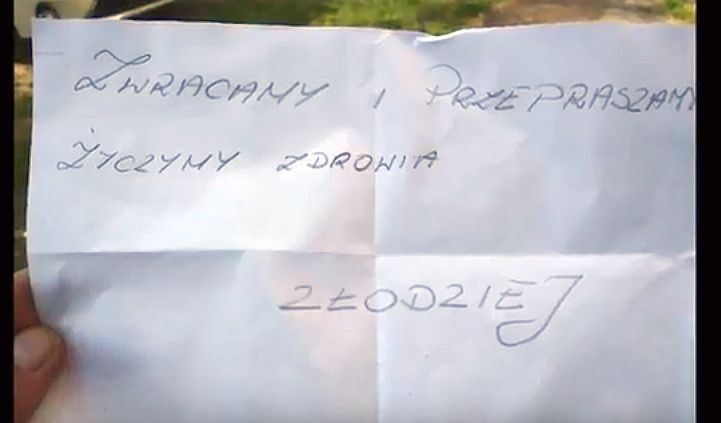 ZWRACAMY I PRZEPRASZAMY
ŻYCZYMY ZDROWIA
ZŁODZIEJ